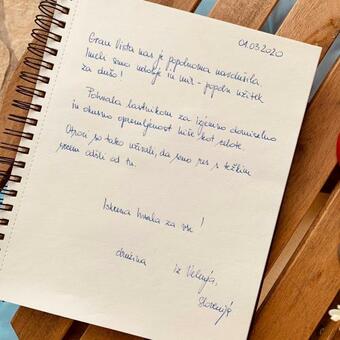 01.03.2020
Gran Vista nas je popolnoma navdušila
Imeli smo udobje in mir - popoln užitek
za dušo!
Pohvala lastnikom za izjemno domiselno
in okusno opremljenost hiše kot celote.
Otroci so tako uživali, da smo res s težkim
srcem odšli od tu.
Iskrena hvala za vse!
družina iz Velenja,
Slovenija